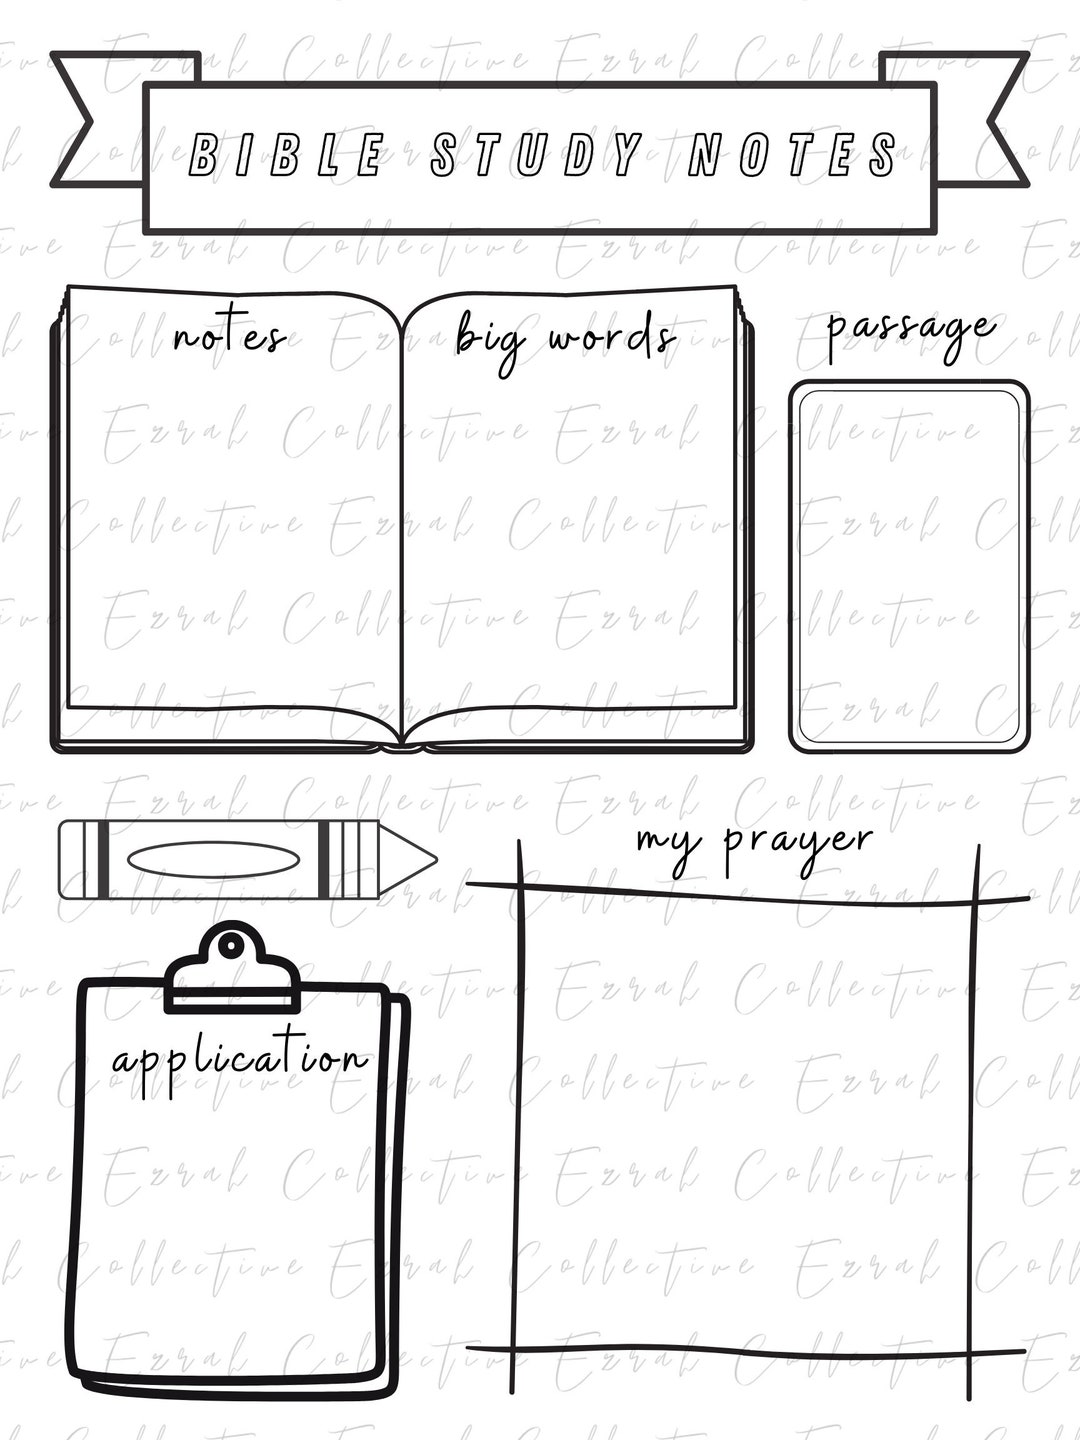 BIBLE STUDY NOTES
notes
big words
passage
my prayer
application
Ezrah Collective